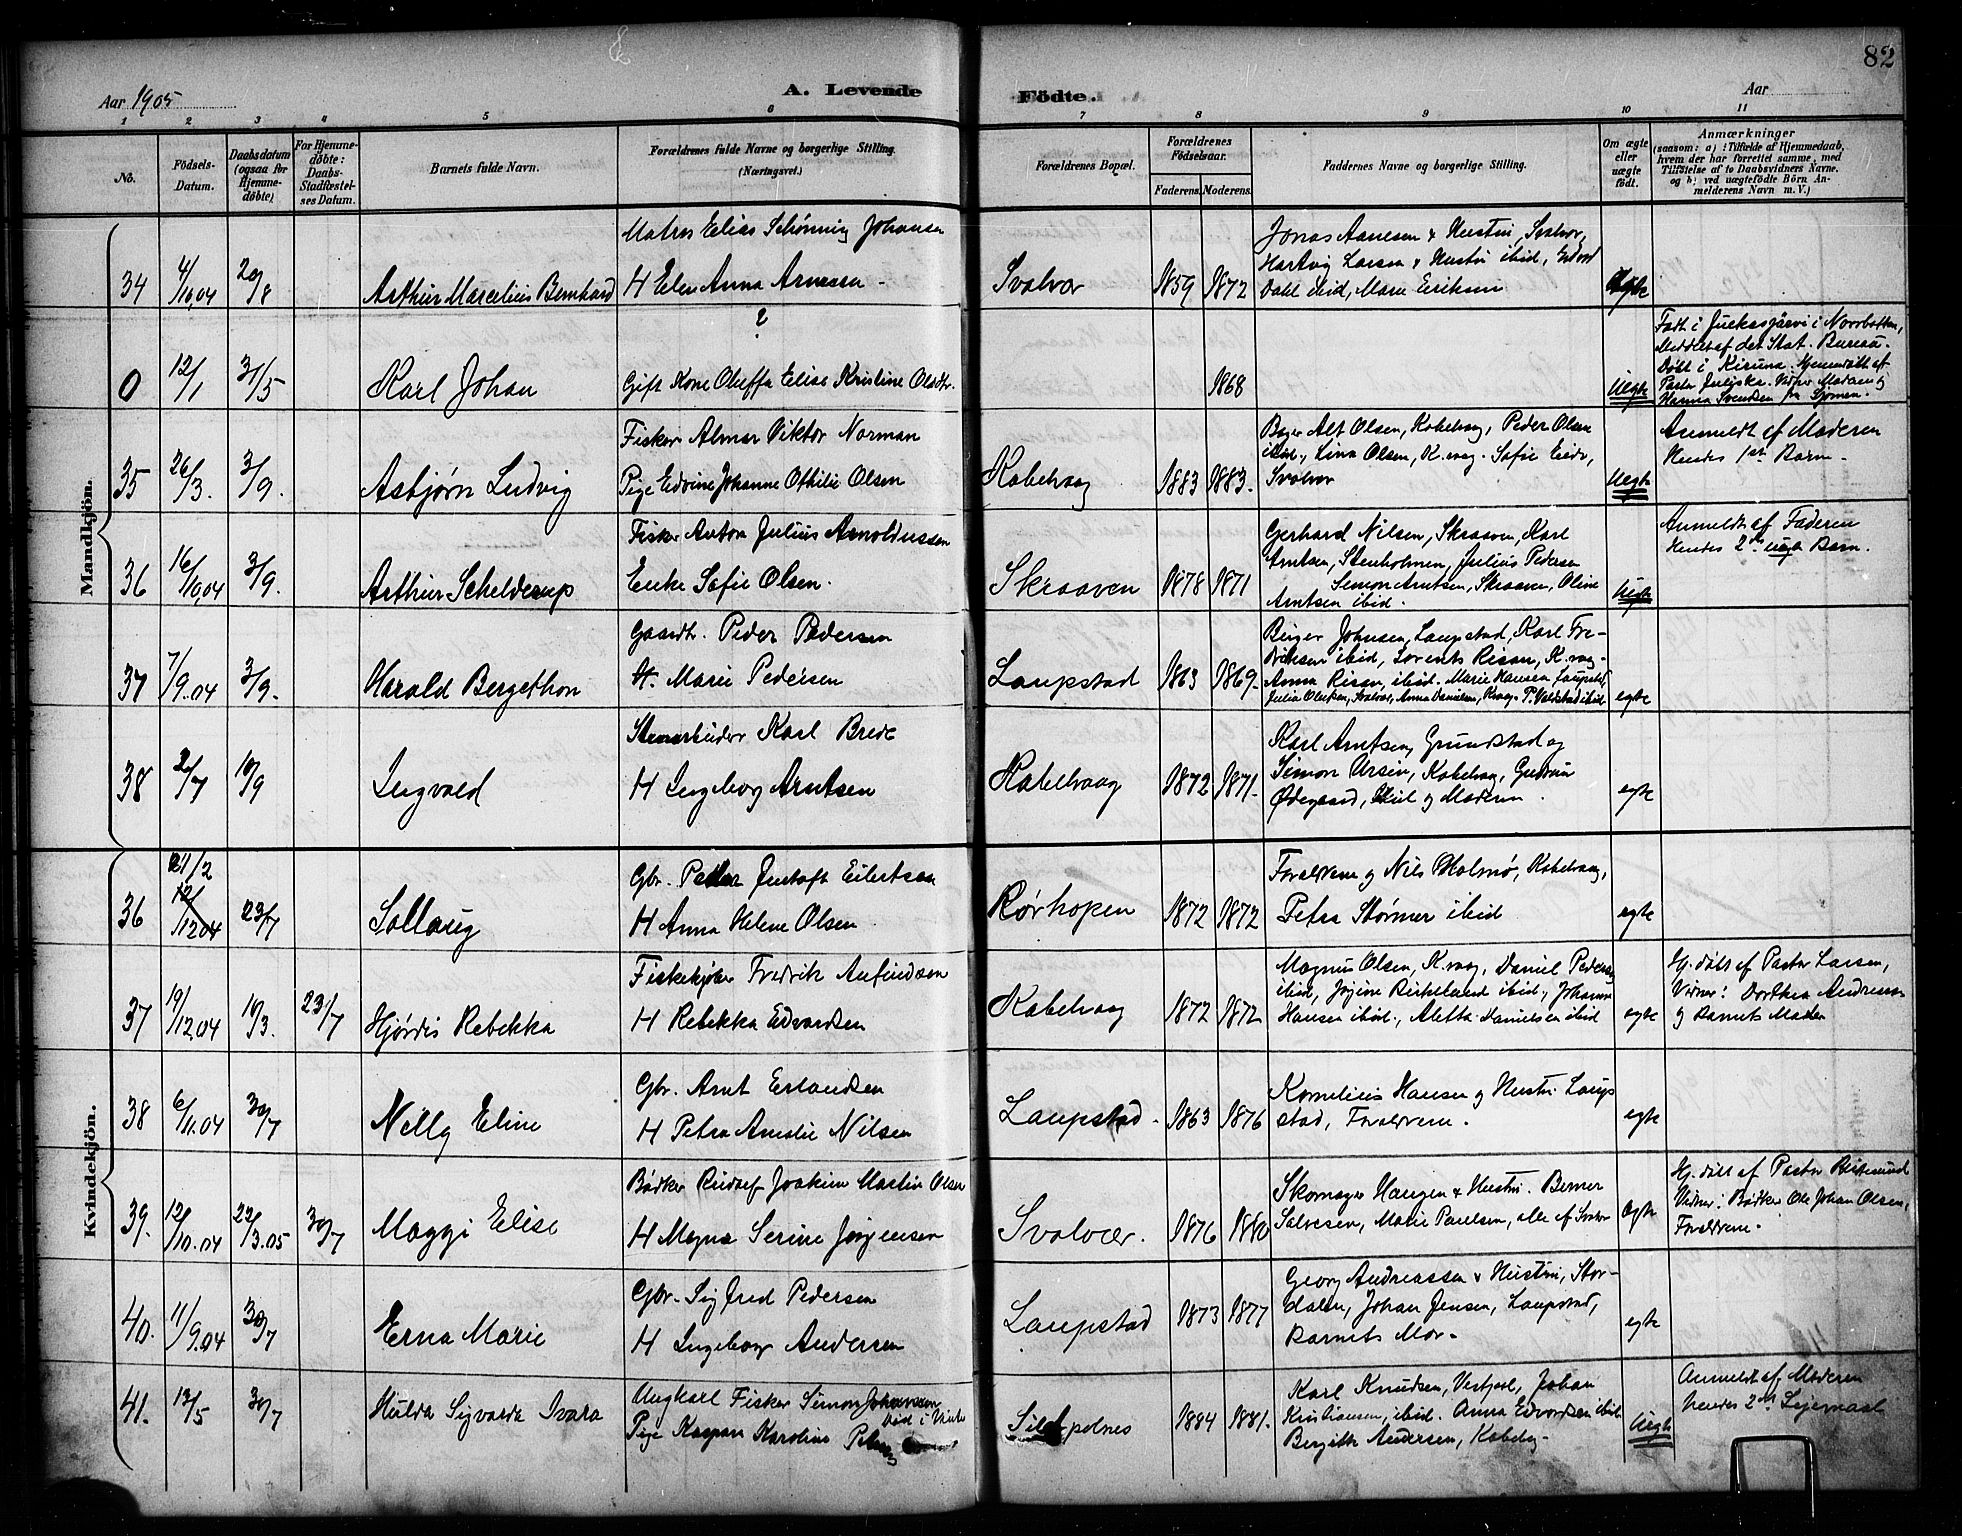 82
Aar 1905
A. Levende
Fødte.
Aar
1 2 3 4 5 6 7 8 9 10 11
No.
Fødsels-Datum.
Daabsdatum (ogsaa for Hjemme-døbte)
For Hjemme-døbte: Daabs-Stadfæstel-ses Datum.
Barnets fulde Navn.
Forældrenes fulde Navne og borgerlige Stilling. (Næringsvei.)
Forældrenes Bopæl.
Forældrenes Fødselsaar.
Faderens. Moderens.
Faddernes Navne og borgerlige Stilling.
Om ægte eller uægte født.
Anmærkninger
(saasom: a) i Tilfælde af Hjemmedaab, hvem der har forrettet samme, med Tilføielse af to Daabsvidners Navne. og b) ved uægtefødte Børn An-melderens Navn m. V.)
Mandkjön.
34 4/10,04 20/8
Arthur Marcelius Bernhard
Matros Elias Schønning Johansen
H Elen Anna Arnesen
Svolvær 1859 1872
Jonas Aanesen & Hustru, Svolvær,
Hartvig Larsen & Hustru ibid,
Dahl ibid, Marie Eriksen
ægte
0 12/1 31/5
Karl Johan
?
Gift Kone Oluffa Elise Kristine
1868
Uegte
Født i Juckasjärvi i Norrbotten,
Meddelt af det Stat. Bureau.
Døbt i Kiruna. Hjemmedøbt af
Hanna Svendsen fra
35 26/3. 3/9.
Asbjørn Ludvig
Fisker Almar Viktor Norman
Pige Edvine Johanne Othilie Olsen
Kabelvaag 1883 1883.
Bager Alf Olsen, Kabelvaag, Peder Olsen
ibid., Lina Olsen, K.vaag. Sofie
Svolvær
Uegte
Anmeldt af Moderen
Hendes 1ste Barn.
36 16/10,04 3/9.
Arthur Schelderup
Fisker Anton Julius Arnoldussen
Enke Sofie Olsen.
Skraaven 1878 1871
Gerhard Nilsen, Skraaven, Karl
Arntsen, Stenholmen, Julius Pedersen
Simon Arntsen, Skraaven, Oline
Arntsen ibid.
Uegte
Anmeldt af Faderen
Hendes 2det uegte Barn.
37 7/9.04 3/9.
Harald Bergethon
Gaardb. Peder Pedersen
H. Marie Pedersen
Laupstad 1863 1869.
Birger Johnsen, Laupstad, Karl Fre-
driksen ibid, Lorents Risan, K.vaag.
Anna Risan, ibid. Marie Hansen Laupstad
Svolvær, Anna Danielsen, Kvaag.
egte
38 2/7 10/9
Ingvald
Stenarbeider Karl Brede
H Ingeborg Arntsen
Kabelvaag 1872 1871.
Karl Arntsen, Grundstad og
Simon Ursin, Kabelvaag, Gudrun
Ødegaard, ibid og Moderen.
egte
Kvindekjön.
36 21/2 12/12.04 23/7
Sollaug
Gbr. Peder Jentoft Eilertsen
H Anna Helene Olsen
Rørhopen 1872 1872
Forældrene og Nils Holmø, Kabelvaag,
Petra Størmer ibid
egte
37 19/12.04 19/3. 23/7
Hjørdis Rebekka
Fiskekjøber Fredrik Anfindsen
H Rebekka Edvardsen
Kabelvaag 1872 1872
Magnus Olsen, K.vaag, Daniel Pedersen
ibid, Birkeland ibid., Johanne
Hansen ibid., Aletta Danielsen ibid
egte
Hj. døbt af Pastor Larsen,
Vidner: Dorthea Andresen
og Barnets Moder
38 6/11.04 30/7
Nelly Eline
Gbr. Arnt Erlandsen
H Petra Amalie Nilsen
Laupstad. 1863 1876
Kornelius Hansen og Hustru Laup
stad, Forældrene.
egte
39. 12/10.04 22/3.05 30/7
Maggi Elise
Bødker Rudolf Joakim Martin Olsen
H Magna Serine Jørgensen
Svolvær. 1876 1880
Skomager Haugen & Hustru. Berner
Salvesen, Marie Paulsen, alle af Svolvær
egte
Hj. døbt af Pastor
Vidner: Bødker Ole Johan Olsen,
Forældrene.
40. 11/9.04 30/7
Erna Marie
Gbr. Sigfred Pedersen
H Ingeborg Andersen
Laupstad 1873 1877
Georg Andreassen & Hustru, Stor-
dalen, Johan Jensen, Laupstad,
Barnets Mor.
egte
41. 13/5 30/7
Hulda Sigvarda Ivara
Ungkarl Fisker Simon Johannsen
død i Vinter
Pige Kaspara Karoline
1884 1881.
Karl Knudsen, Johan
Kristiansen, ibid. Anna Edvardsen ibid
Bergitte Andersen,
Uegte
Anmeldt af Moderen
hendes 2det Leiermaal